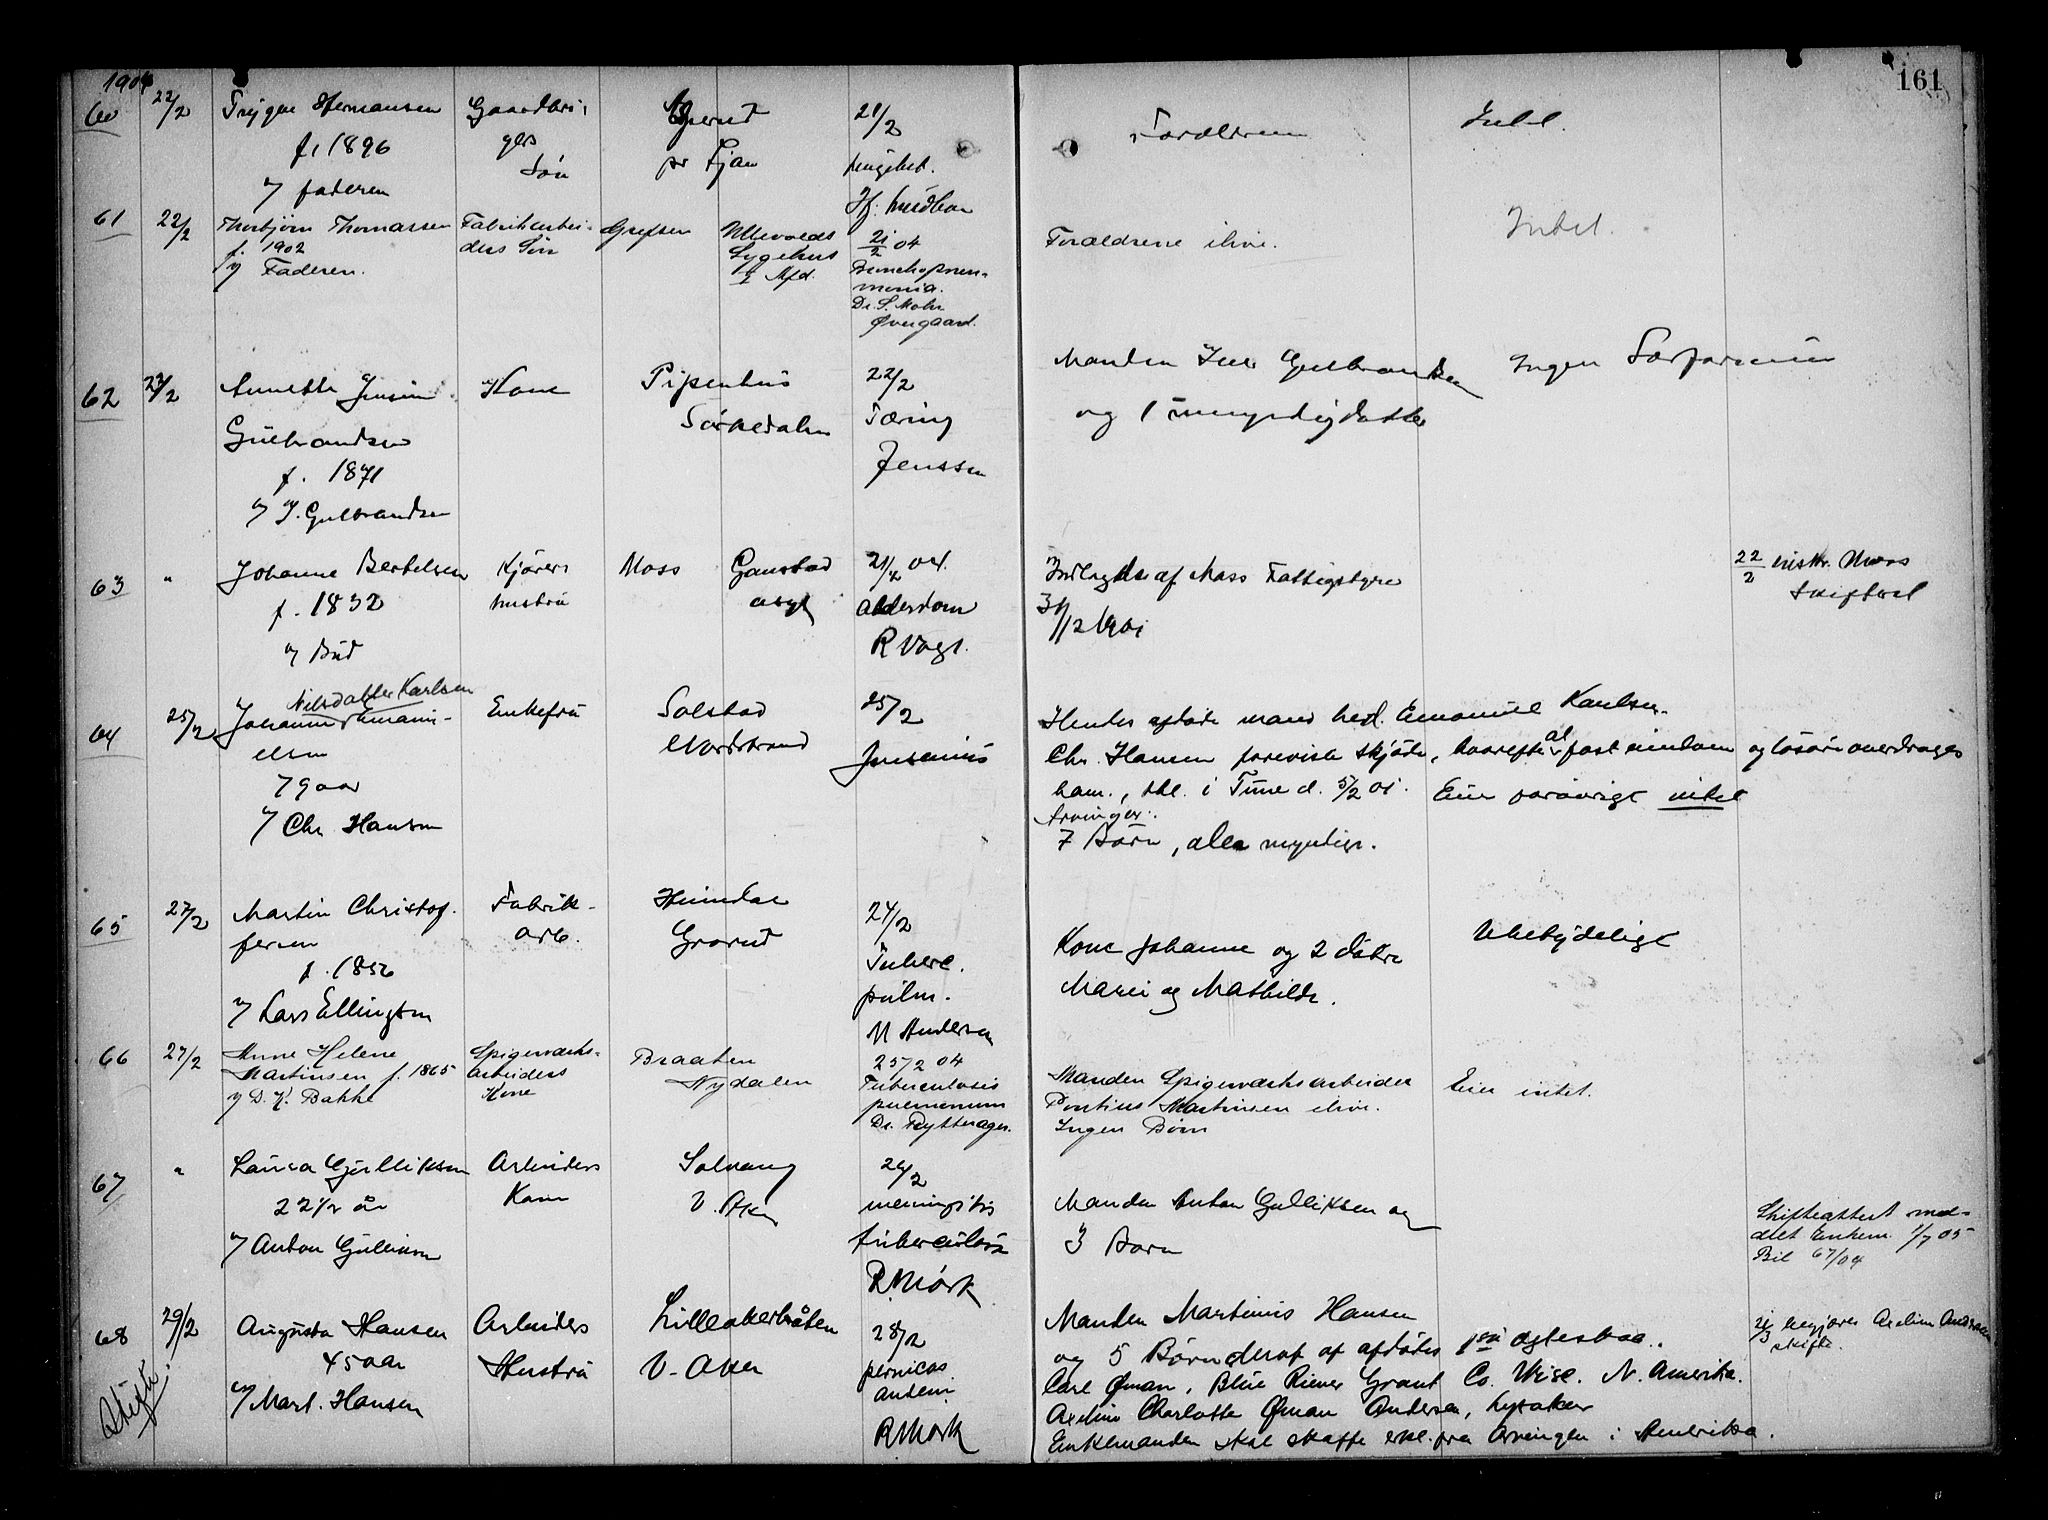 161
1904
60
22/2
Trygve Hermansen
f. 1896
v/ faderen
Gaardbru-
gers
Søn
pr Ljan
21/2
Forældrene
Intet.
61
22/2
Thorbjørn Thomassen
f. 1902
v/ Faderen.
Fabrikarbei-
ders Søn
Grefsen
Ullevolds
Sygehus
Afd.
21/2 04
Bronchopneu-
monia.
Dr. S. Mohr
Øvergaard.
Forældrene ilive.
Intet.
62
23/2
Annette Jensine
Gulbrandsen
f. 1871
v/ J. Gulbrandsen
Kone
Pipenhus
Sørkedalen
22/2
Tæring
Jenssen
Manden Iver Gulbrandsen
og 1 umyndig datter
Ingen Særformue
63
"
Johanne Bertelsen
f. 1832
v/ Bud
Kjørers
hustru
Moss
Gaustad
asyl
21/2
Alderdom
R Vogt.
Indlagt af Moss Fattigstyre
31/12 1901
22/2 Moss
Skifteret
64
25/2
Nilsdatter Karlsen
Johanne Emanu-
elsen
79 aar
v/ Chr. Hansen
Enkefru
Solstad
Nordstrand
25/2
Jusenius
Hendes afdøde mand hed. Emanuel Karlsen.
Chr. Hansen foreviste skjøde, hvorefter al fast eiendom og løsøre overdrages
ham, thl. i Tune d. 5/2 01. Eier forøvrigt intet
Arvinger:
7 Børn, alle myndige.
65
27/2
Martin Christof-
fersen
f. 1856
v/ Lars Ellingsen
Fabrik-
arb.
Heimdal
Grorud
24/2
Tuberc.
pulm.
N Andersen
Kone Johanne og 2 døtre
Marie og Mathilde.
Ubetydeligt
66
27/2
Anne Helene
Martinsen f. 1865
v/ D. K. Bakke
Spigerværks-
arbeiders
Kone
Braaten
Nydalen
25/2 04
Tuberculosis
pulmonum
Dr. Rytterager.
Manden Spigerværksarbeider
Pontius Martinsen ilive.
Ingen Børn
Eier intet.
67
"
Laura Gulliksen
22 1/2 år
v/ Anton Gulliksen
Arbeiders
Kone
Solvang
V. Aker
26/2
meningitis
tuberculosa
R. Mørk
Manden Anton Gulliksen og
3 Børn
Skifteattest med-
delt Enkem. 1/7 05
Bil 67/04
68
29/2
Skifte.
Augusta Hansen
45 aar
v/ Mart. Hansen
Arbeiders
Hustru
Lilleakerbråten
V. Aker
28/2
pernicøs
anæmi
R Mørk
Manden Martinus Hansen
og 5 Børn deraf af afdødes 1ste ægteskab:
Carl Øman, Blue River Grant Co. Wisc. N. Amerika.
Axeline Charlotte Øman Andersen, Lysaker
Enkemanden skal skaffe erkl. fra Arvingen i Amerika.
21/3 begjærer Axeline Andersen
skifte.